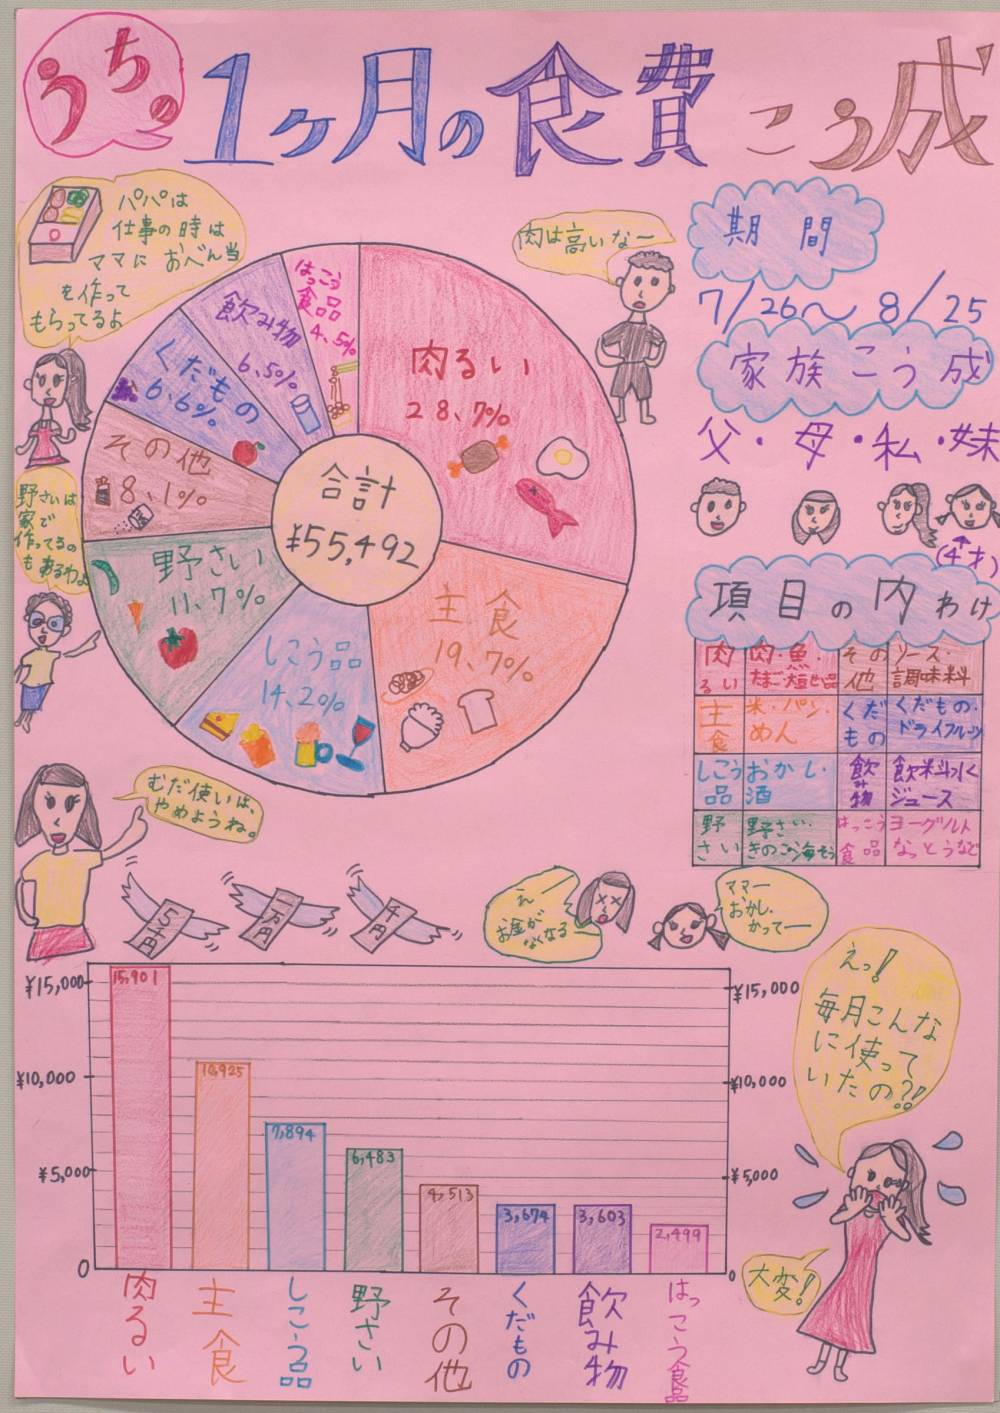 うちの
1ヶ月の食費こう成
パパは
仕事の時は
ママにおべん当
を作って
もらってるよ
肉は高いなー
期間
7/26〜8/25
家族こう成
父・母・私・妹
(4才)
項目の内わけ
肉るい 肉・魚・たまご・
その他 ソース・調味料
主食 米・パン・めん
くだもの くだもの・ドライフルーツ
しこう品 おかし・酒
飲み物 飲料水 ジュース
野さい 野さい・きのこ・海そう
はっこう食品 ヨーグルト なっとうなど
肉るい
28.7%
主食
19.7%
しこう品
14.2%
野さい
11.7%
その他
8.1%
くだもの
6.6%
飲み物
6.5%
はっこう食品
4.5%
合計
¥55,492
野さいは
家で
作ってるの
もあるわよ
むだ使いは、
やめようね。
5千円
1万円
千円
え
お金が
なくなるー
ママー
おかし
かってー
¥15,000
¥10,000
¥5,000
0
15,901
10,925
7,894
6,483
4,513
3,674
3,603
2,499
¥15,000
¥10,000
¥5,000
0
肉るい
主食
しこう品
野さい
その他
くだもの
飲み物
はっこう食品
えっ!
毎月こんな
に使って
いたの?!!
大変!